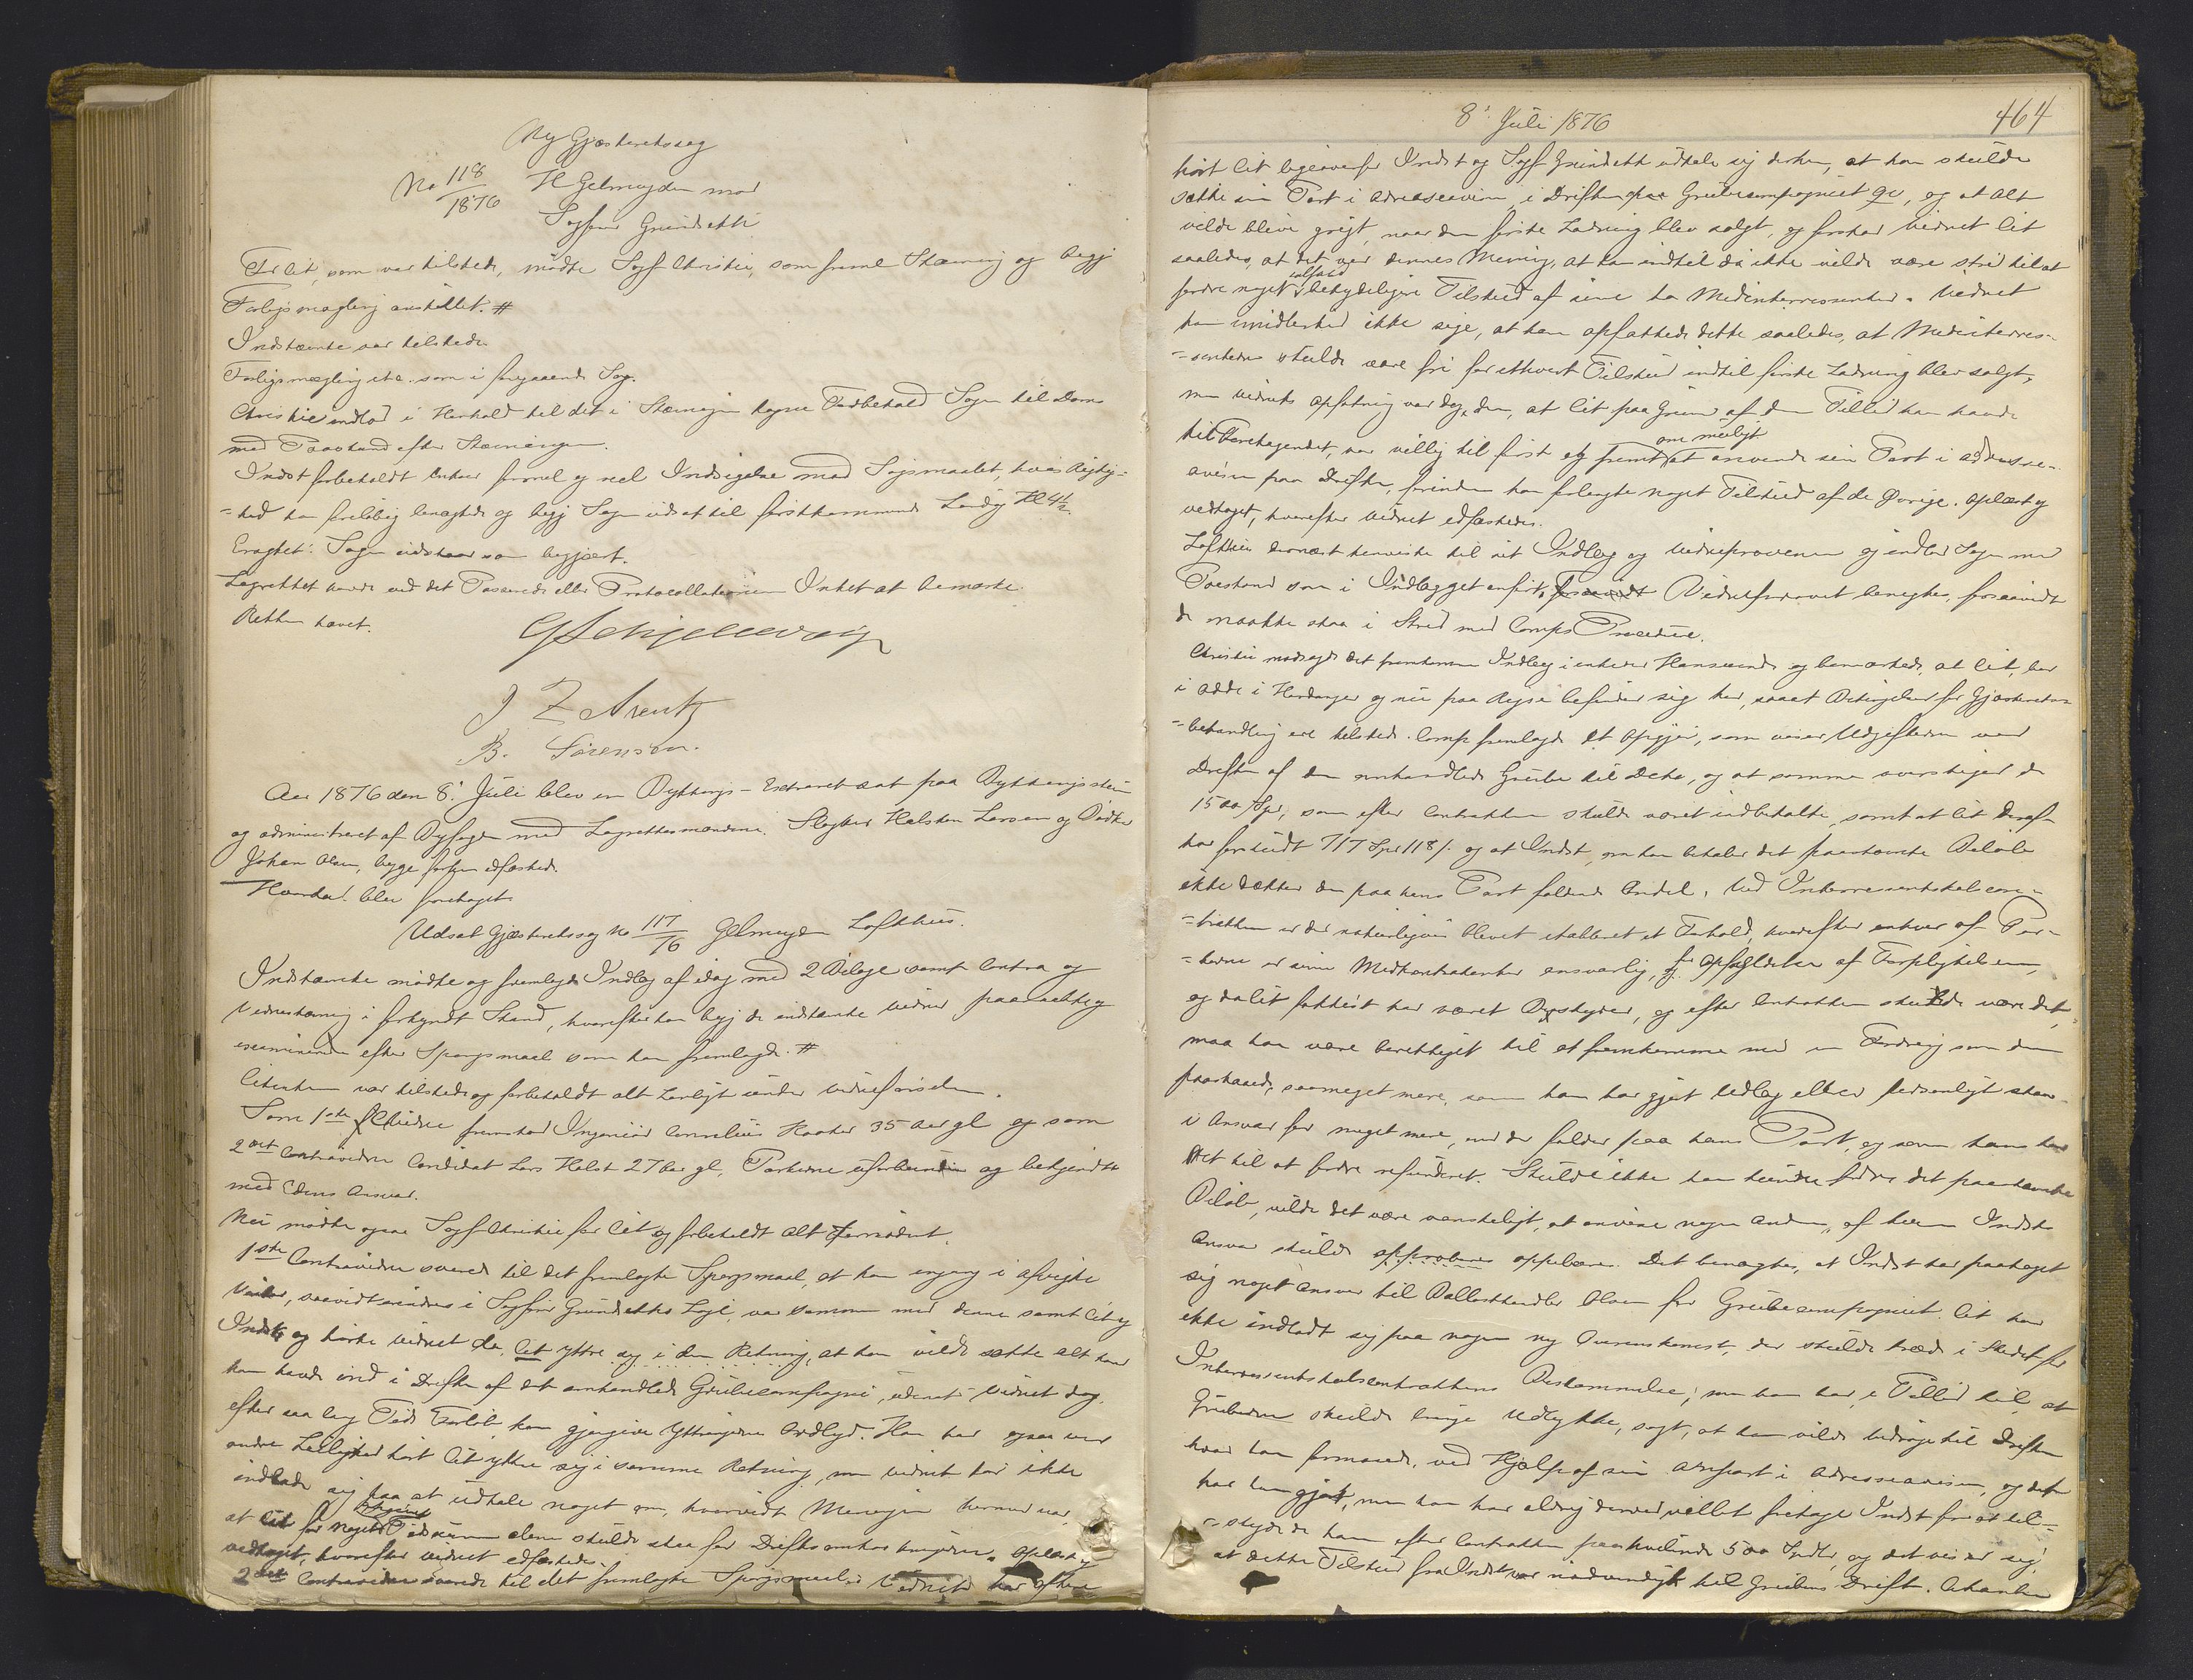 Ny Gjæsteretssag
No 118/1876 H Gelmuyden mod
Sagfører Grundseth
For Cit, som var tilstede, mødte Sagf Christie, som freml Stævning og begj
Forligsmægling anstillet. #
Indstævnte var tilstede
Forligsmægling etc. som i foregaaende Sag.
Christie indlod i Henhold til det i Stævningen tagne Forbehold Sagen til Doms
med Paastand efter Stævningen.
Indst forbeholdt enhver formel og reel Indsigelse mod Søgsmaalet, hvis Rigtig-
=hed han foreløbig benægtede og begj Sagen udsat til førstkommende Lørdag Kl 4½.
Eragtet: Sagen udstaar som begjært.
Lagrettet havde ved det Passerede eller Protocollationen Intet at bemærke.
Retten hævet.
J Z Arentz
B. Sørensen.
Aar 1876 den 8. Juli blev en Bythings-Extraret sat paa Bythingsstuen
og administreret af Byfogden med Lagrettesmændene Slagter Halsten Larsen og Bødker
Johan Olsen, begge forhen edfæstede.
Hvorda! blev foretaget
Udsat Gjæsteretssag No 117/76 Gelmuyden Lofthus.
Indstævnte mødte og fremlagde Indlæg af idag med 2 Bilage samt Contra og
Vidnestævning i forkyndt Stand, hvorefter han begj de indstævnte Vidner paaraabt og
examinerede efter Spørgsmaal som han fremlagde. #
Citanten var tilstede og forbeholdt alt Lovligt under Vidneførselen.
Som 1ste Vidne fremstod Ingeniør Cornelius Hooter 35 Aar gl og som
2det Contravidne Candidat Lars Holst 27 Aar gl, Parterne uforbunden og bekjendt
med Edens Ansvar.
Nu mødte ogsaa Sagf Christie for Cit og forbeholdt alt Fornødent.
1ste Contravidne svared til det fremlagte Spørgsmaal, at han engang i afvigte
Vinter, saavidt erindres i Sagfører Grundseths Logi, var sammen med denne samt Cit og
Indst og hørte Vidnet da, Cit yttre sig i den Retning, at han vilde sætte alt hvad
han havde ind i Driften af det omhandlede Grubecompagni, uden at Vidnet dog,
efter saa lang Tids Forløb, kan gjengive Yttringernes Ordlyd. Han har ogsaa ved
andre Leilighed hørt Cit yttre sig i samme Retning, men Vidnet tør ikke
indlade sig paa at udtale noget om, hvorvidt Meningen hermed var,
at Cit for noget Tidsrum alene skulde staa for Driftsomkostningerne. Oplæst og
vedtaget, hvorefter Vidnet edfæstedes.
2det Contravidne svarede til det fremlagte Spørgsmaal: Vidnet har oftere
8' Juli 1876
464
hørt Cit ligeoverfor Indst og Sagf Grundseth udtale sig derhen, at han skulde
sætte sin Part i Adresseavisen i Driften paa Grubecompagniet qv, og at Alt
vilde blive greit, naar den første Ladning blev solgt, og forstod Vidnet Cit
saaledes, at det var dennes Mening, at han indtil da ikke vilde være stred til at
fordre noget ialfald betydeligere Tilskud af sine to Medinteressenter. Vidnet
kan imidlertid ikke sige, at han opfattede dette saaledes, at Medinteres-
=senterne skulde være fri for ethvert Tilskud indtil første Ladning blev solgt,
men Vidnets Opfatning var dog den, at Cit paa Grund af den Tillid han havde
til Foretagendet, var villig til først og fremst om muligt at anvende sin Part i Adresse-
avisen paa Driften, forinden han forlangte noget Tilskud af de Øvrige. Oplæst og
vedtaget, hvorefter Vidnet edfæstedes.
Lofthus dernæst henviste til sit Indlæg og Vidneprovenes og indlod Sagen med
Paastand som i Indlægget anført. Vidneprovet benægtes, forsaavidt
de maatte staa i Strid med Comps Procedure.
Christie modsagde det fremkomne Indlæg i enhver Henseende og bemærkede, at Cit, bor
i Odde i Hardanger og nu paa Reise befinder sig her, saaat Betingelsen for Gjæsterets-
=behandling er tilstede. Comp fremlagde et Opgjør, som viser Udgifterne ved
Driften af den omhandlede Grube til Dato, og at samme overstiger de
1500 Spd, som efter Contracten skulde været indbetalte samt at Cit deraf
har forskudt 717 Spd 118 s. og at Indst, om han betaler det paastævnte Beløb
ikke dækker den paa hans Part faldende Andel. Ved Interessentskabscon-
=tracten er der naturligvis blevet etableret et Forhold, hvorefter enhver af Par-
=terne er sine Medkontrahenter ansvarlig for Opfyldelse af Forpligtelsen,
og da Cit faktisk har været Bestyrer, og efter Contracten skulde være det,
maa han være berettiget til at fremkomme med en Fordring som den
paastaaede, saameget mere, som han har gjort Udlæg eller personligt staar
i Ansvar for meget mere, end der falder paa hans Part, og som han har
Ret til at fordre refunderet. Skulde ikke han kunne fordre det paastævnte
Beløb, vilde det være vanskeligt, at anvise nogen Anden, af hvem Indsts
Ansvar skulde approberes oppebæres. Det benægtes, at Indst har paataget
sig noget Ansvar til Ballasthandler Olsen for Grubecompagniet. Cit har
ikke indladt sig paa nogen ny Overenskomst, der skulde træde i Stedet for
Interessentskabscontraktens Bestemmelse; men han har, i Tillid til, at
Gruberne skulde bringe Udbytte, sagt, at han vilde bidrage til Driften
hvad han formaaede, ved Hjælp af sin Anpart i Adresseavisen, og det
har han gjort, men han har aldrig derved villet fritage Indst for at til-
=skyde de ham efter Contracten paahvilende 500 Spdlr, og det viser sig,
at dette Tilskud fra Indst var nødvendigt til Grubens Drift.